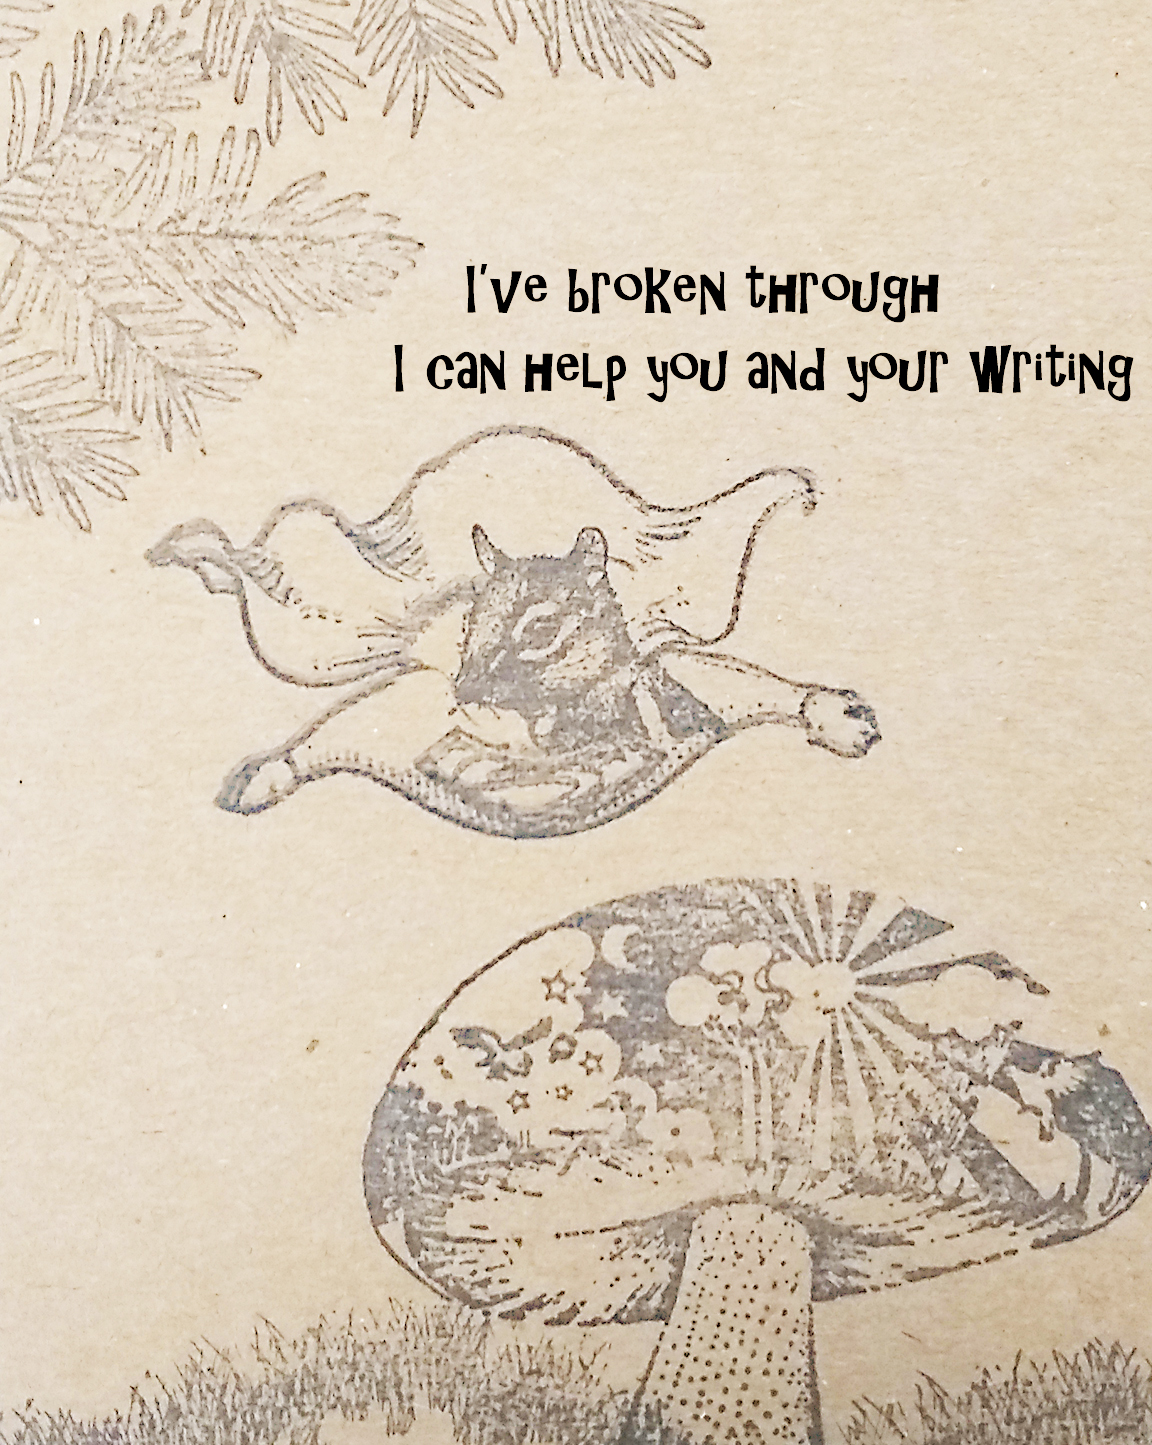 I've broken through
I can help you and your writing